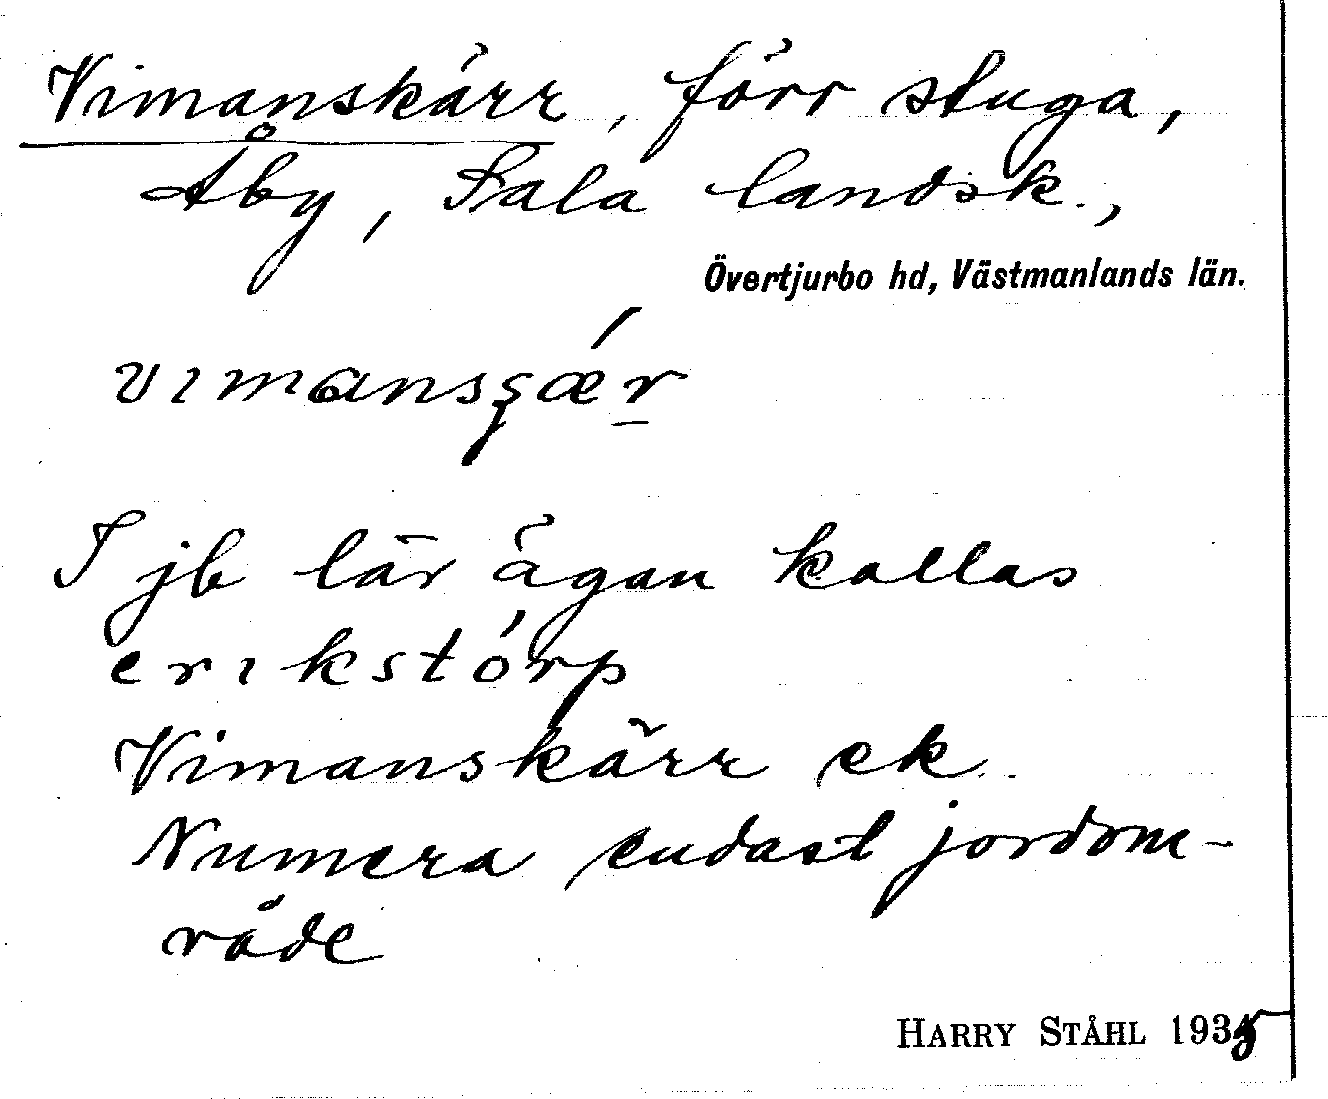 Vimanskärr, förr stuga,
Åby, Sala landsk.,
Övertjurbo hd, Västmanlands län.
I jb lär ägan kallas
erikstórp
Vimanskärr ek
Numera endast jordom-
råde
HARRY STÅHL 1935